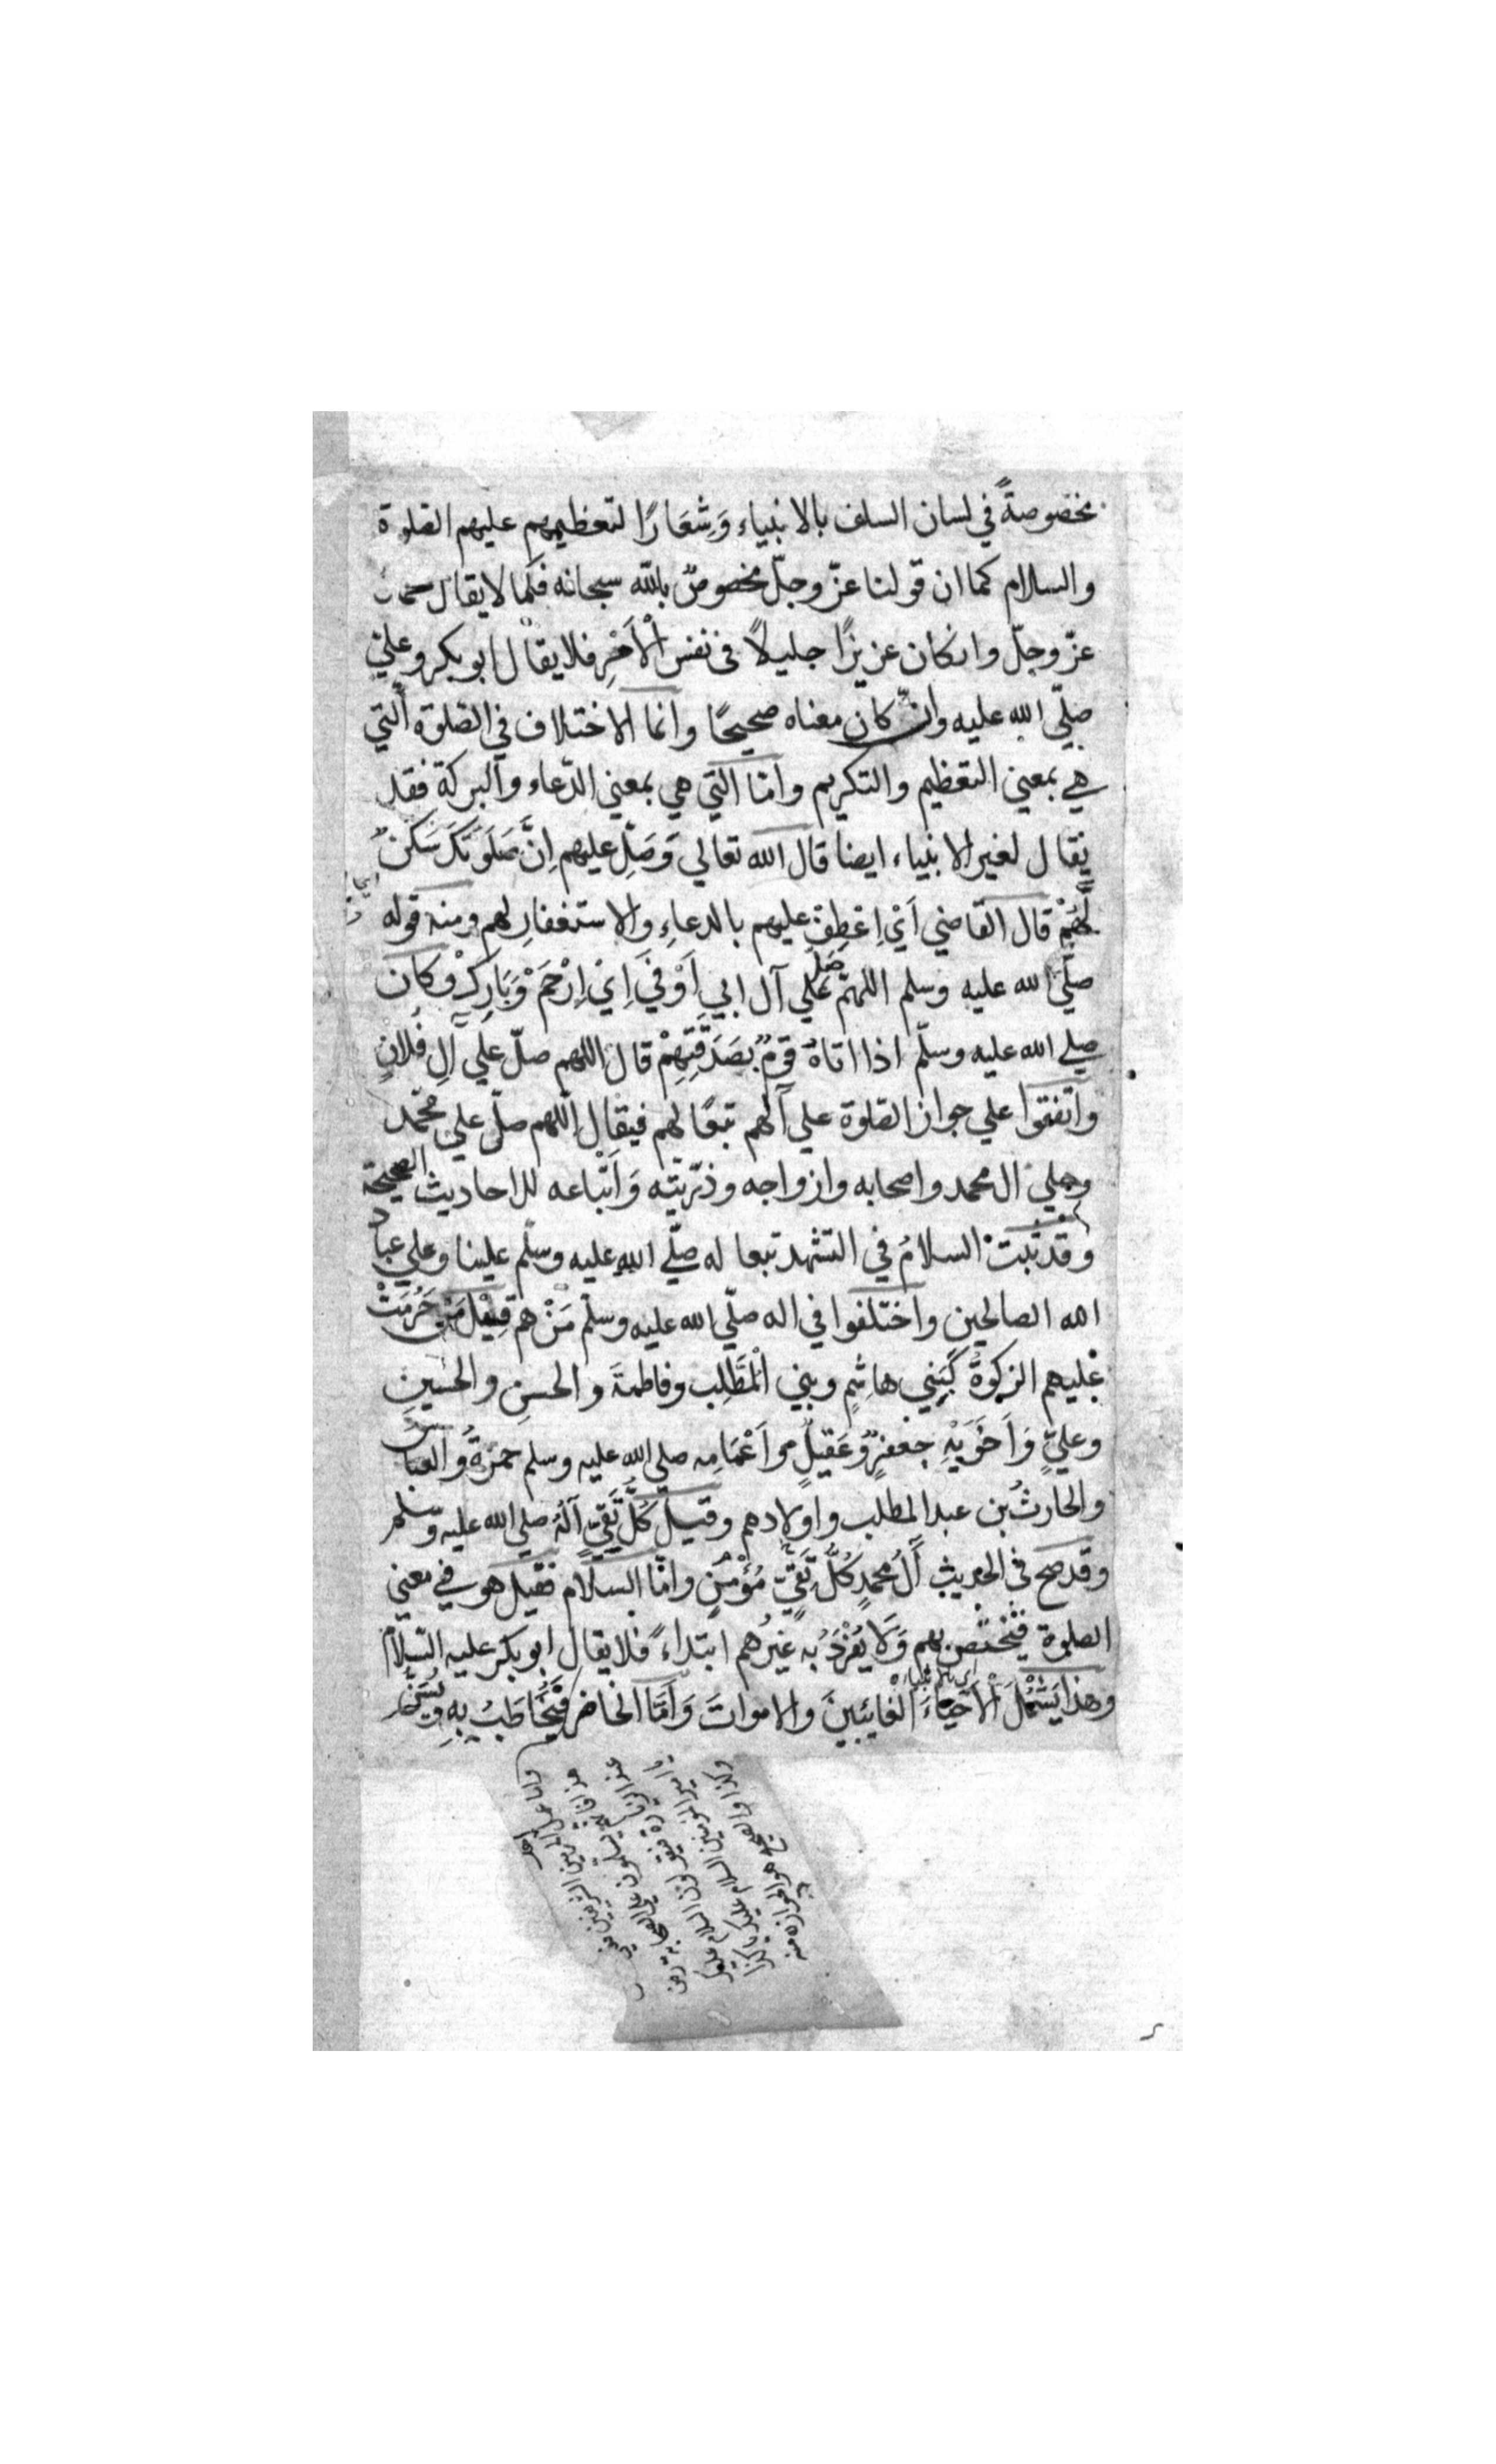 مخصوصةً في لسان السلف بالانبياء وَشِعَارًا لتعظيمهم عليهم الصلوة
والسلام كما ان قولنا عزّ وجلّ مخصوصٌ بالله سبحانه فكما لا يقال محمد
عزّ وجلّ وانكان عزيزًا جليلاً في نفس الْاَمْرِ فلا يقال ابو بكر وعلي
صلّي الله عليه وان كان معناه صحيحًا وانما الاختلاف في الصلوة الّتي
هي بمعني التعظيم والتكريم وامّا الّتي هي بمعني الدّعاء والبركة فقد
يقال لغير الانبياء ايضا قال الله تعالي وَصَلِّ عليهم اِنَّ صَلَوتَكَ سَكَنٌ
لَّهُمْ قال القاضي اَيْ اِعْطِفْ عليهم بالدعاءِ والاستغفارِ لهم ومنه قوله
صلّي الله عليه وسلم اللهمّ صَلِّ علي آل ابي اَوْفي اَيْ اِرْحَمْ وَبَارِكْ وكان
صلي الله عليه وسلّم اذا اتاهُ قومٌ بِصَدَقَتِهِمْ قال اللهم صلّ علي آلِ فُلانٍ
واتّفقوا علي جواز الصلوة علي آلهم تبعًا لهم فيقال اللّهم صلّ علي محمّد
وعلي ال محمد واصحابه وازواجه وذرّيّته وَاَتْباعه للاحاديث الصحيحة
وقد ثبتْ السلامُ في التشهد تبعا له صلّي الله عليه وسلّم علينا وعلي عباد
الله الصالحين واختلفوا في اله صلّي الله عليه وسلّم مَنْ هم قِيْلَ مَنْ حَرُمَتْ
عليهم الزكوةُ كَبَنِي هاشِمٍ وبني الْمُطَّلِب وفاطمةَ والحسنِ والحسينِ
وعليٍّ وَاَخَوَيْهِ جعفرٍ وَعَقِيلٍ واَعْمَامِه صلي الله عليه وسلم حمزةُ والعباسُ
والحارثُ بن عبد المطلب واولادهم وقيل كُلُّ تَقِيٍّ آلُهُ صلي الله عليه وسلم
وقد صحّ في الحديث اَلُ محمدٍ كُلُّ تَقِيٍّ مُؤْمنٍ وامّا السلام فقيل هو في معني
الصلوة فيَخْتَصّ بهم وَلَا يُفْرَدُ به غيرُهم ابتداءً فلا يقال ابو بكر عليه السّلام
وهذا يَشْمُلَ الْاَحْيَاءَ الغايبينَ والامواتَ وَاَمَّا الحاضر فَيُخَاطَبُ بِهِ